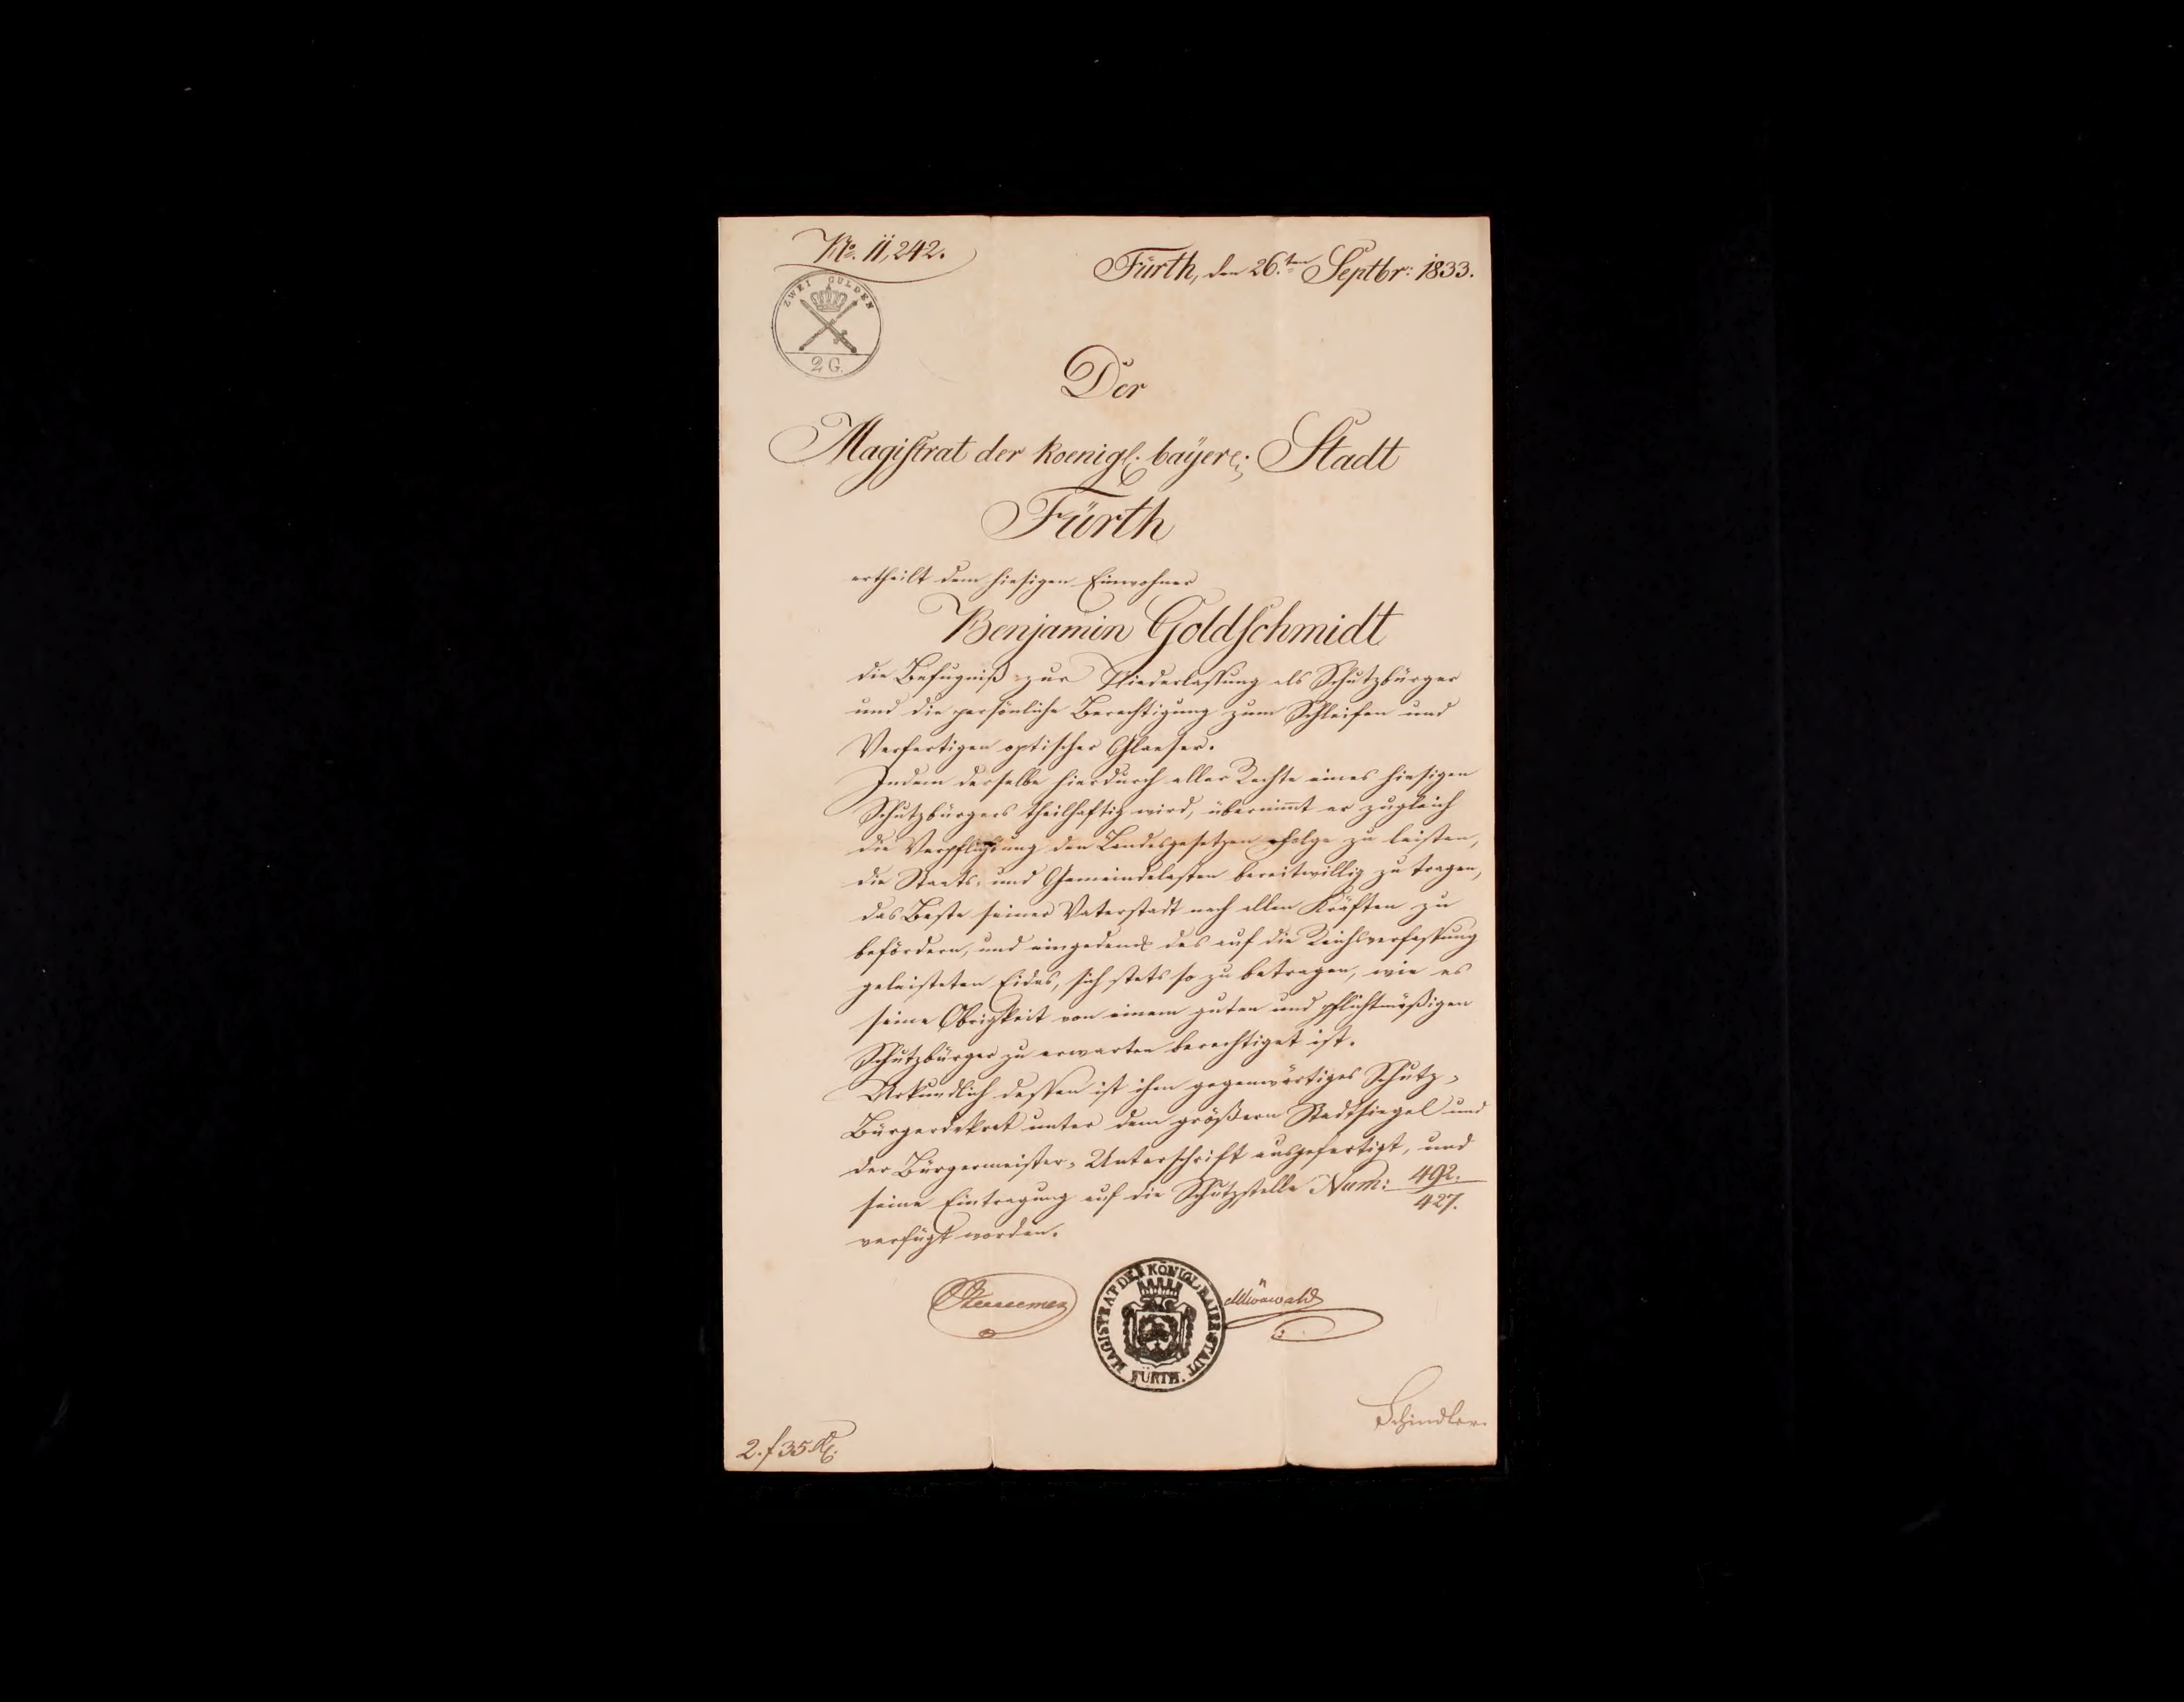 No. 11,242.
Fürth, den 26.ten Septbr: 1833.
ZWEI GULDEN
2 G.
Der
Magistrat der koenigl. bayer: Stadt
Fürth
ertheilt dem hiesigen Einwohner
Benjamin Goldschmidt
die Befugniß zur Niederlassung als Schutzbürger
und die persönliche Berechtigung zum Schleifen und
Verfertigen optischer Glaeser.
Indem derselbe hierdurch aller Rechte eines hiesigen
Schutzbürgers theilhaftig wird, übernimmt er zugleich
die Verpflichtung den Landesgesetzen Folge zu leisten,
die Staats- und Gemeindelasten bereitwillig zu tragen,
das Beste seiner Vaterstadt nach allen Kräften zu
befördern, und eingedenk des auf die Reichsverfassung
geleisteten Eides, sich stets so zu betragen, wie es
seine Obrigkeit von einem guten und pflichtmäßigen
Schutzbürger zu erwarten berechtiget ist.
Urkundlich dessen ist ihm gegenwärtiges Schutz-
Bürgerdekret unter dem größern Stadtsiegel und
der Bürgermeister-Unterschrift ausgefertigt, und
seine Eintragung auf die Schutzstelle Num: 492.
427.
verfügt worden.
MAGISTRAT DER KÖNIGL. BAIER. STADT
FÜRTH.
Schindler.
2. f 35